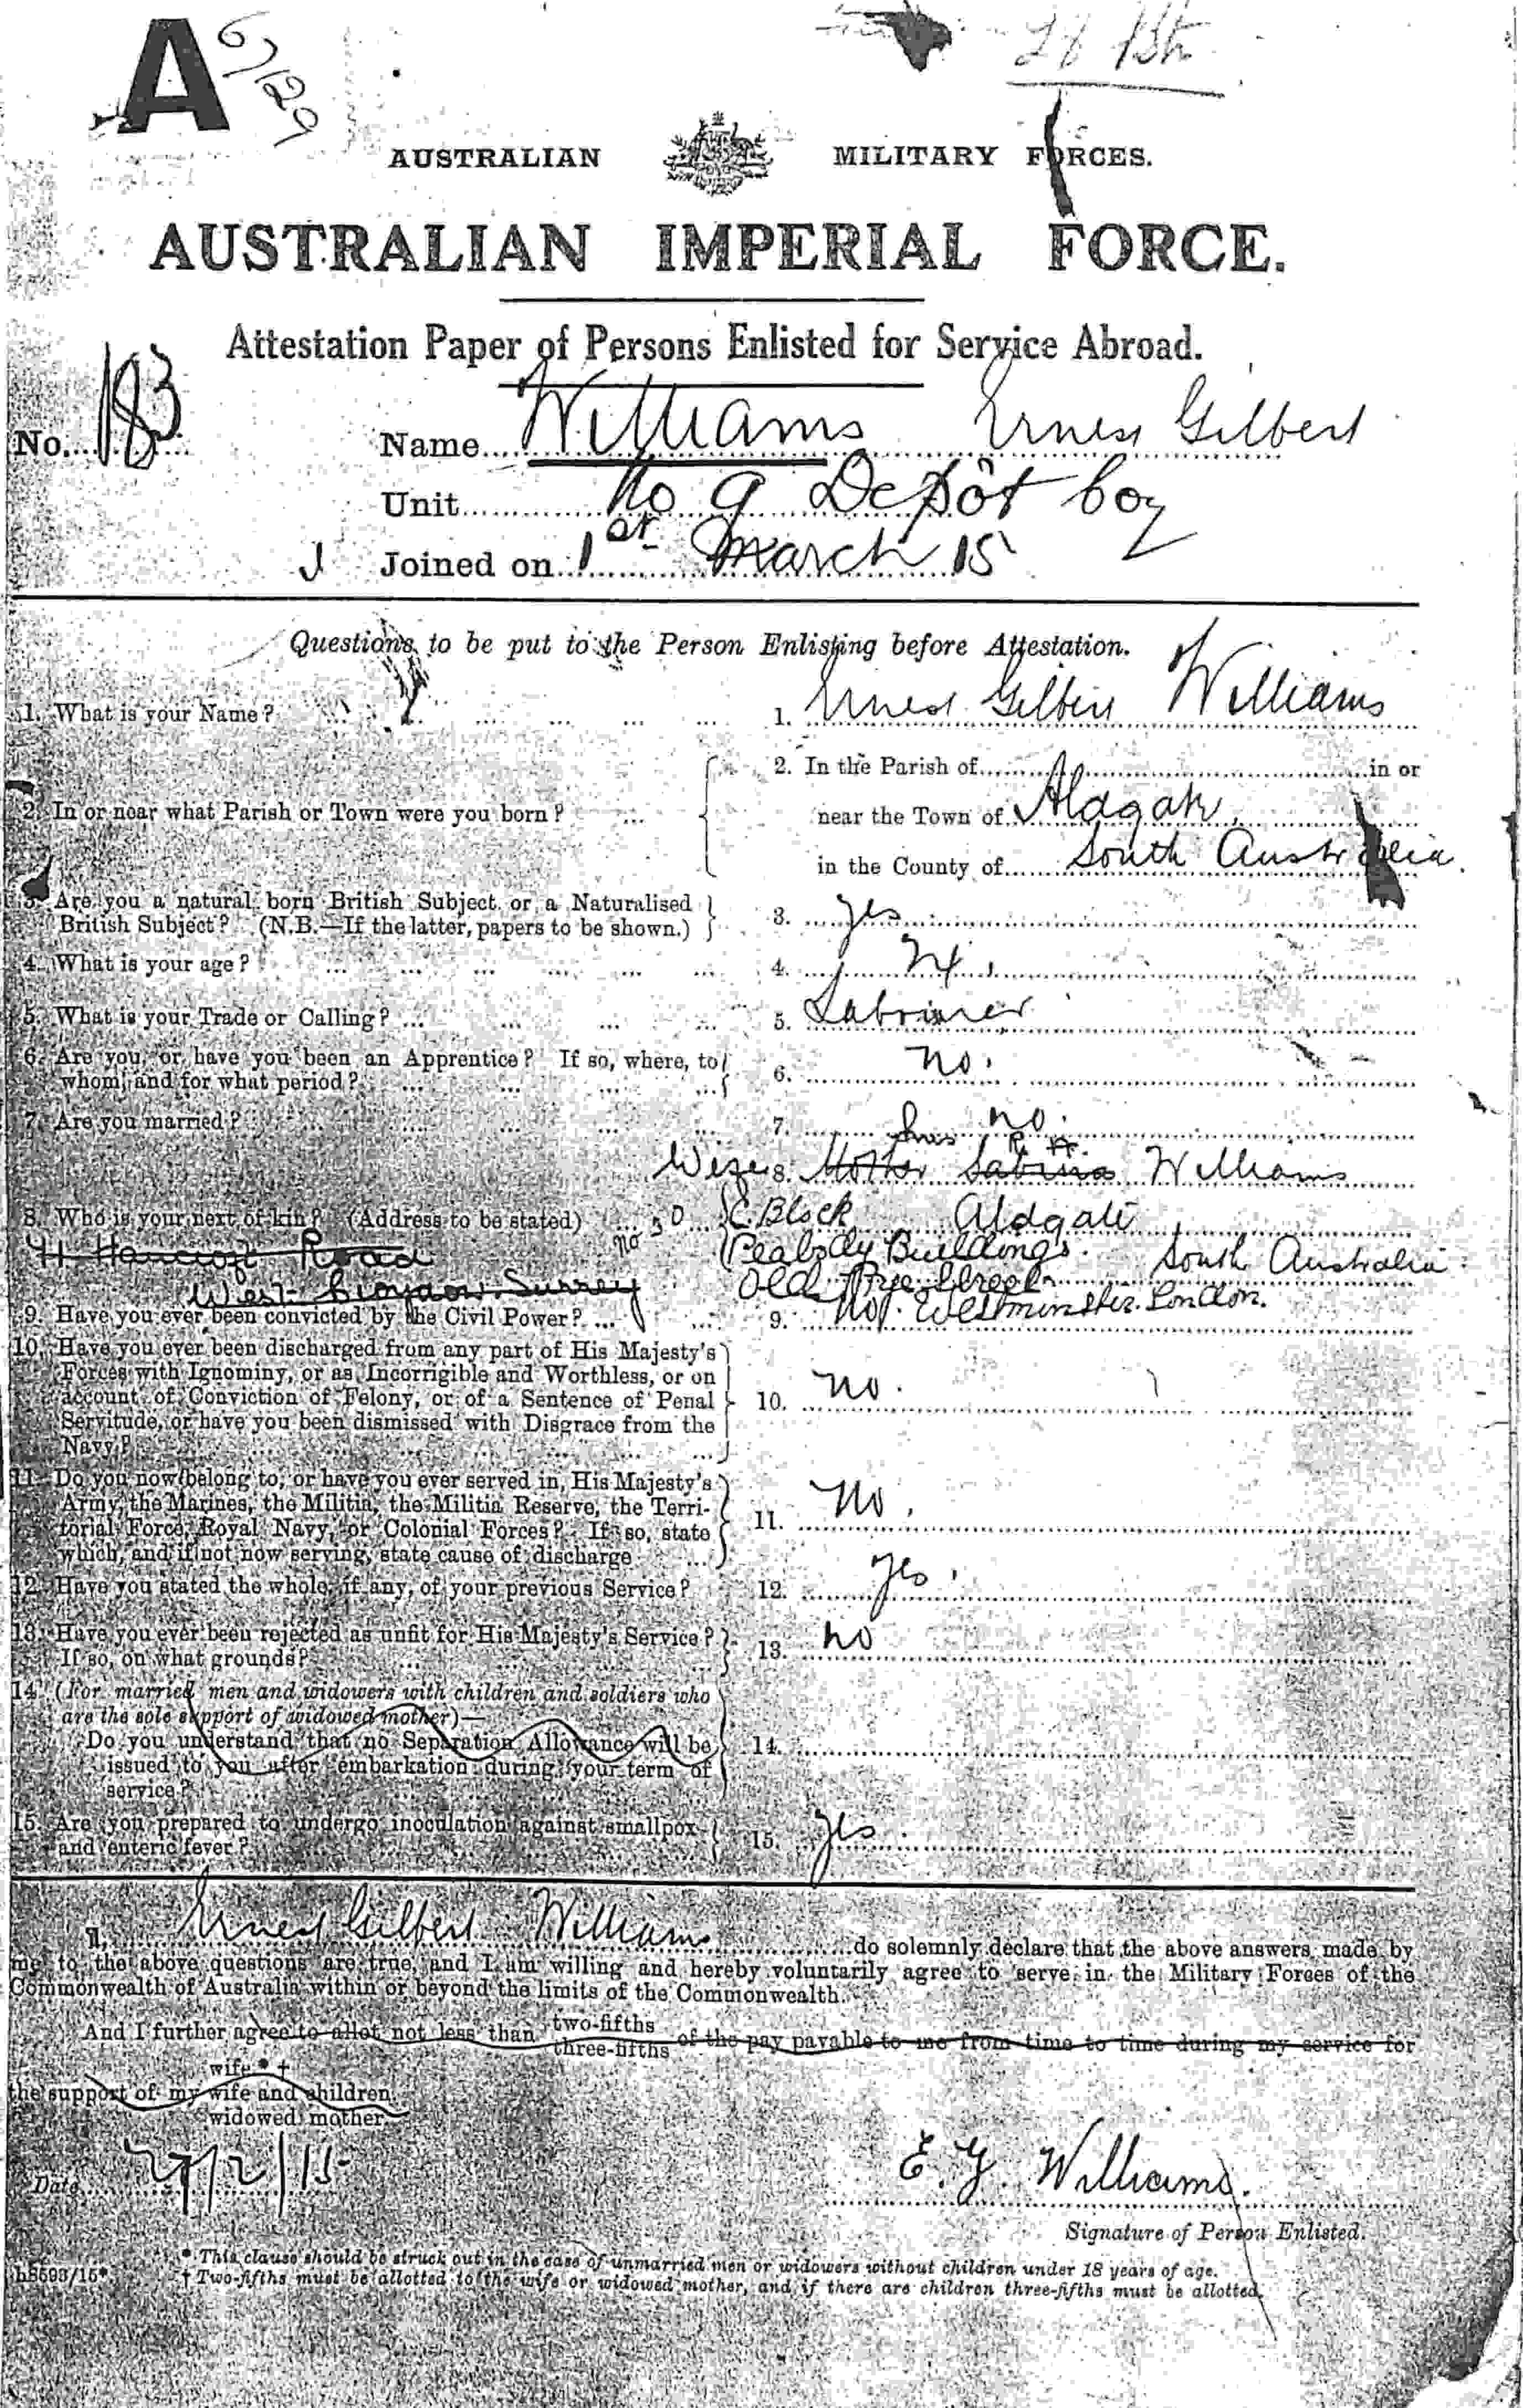 A
67129
27 Bn
AUSTRALIAN MILITARY FORCES.
AUSTRALIAN IMPERIAL FORCE.
Attestation Paper of Persons Enlisted for Service Abroad.
No. 183 Name Williams Ernest Gilbert
Unit No 9 Depôt Coy
J Joined on 1st March 15
Questions to be put to the Person Enlisting before Attestation.
1. What is your Name? ... 1. Ernest Gilbert Williams
2. In the Parish of in or
2. In or near what Parish or Town were you born? ... near the Town of Aldgate,
in the County of South Australia.
3. Are you a natural born British Subject or a Naturalised
British Subject? (N.B.—If the latter, papers to be shown.) 3. Yes
4. What is your age? ... 4. 24.
5. What is your Trade or Calling? ... 5. Labourer
6. Are you, or have you been an Apprentice? If so, where, to
whom, and for what period? ... 6. No.
7. Are you married? ... 7. No.
Wife 8. Mother Sabina Mrs R A. Williams
8. Who is your next of kin? (Address to be stated) ... No 30 C. Block Aldgate
Road Peabody Buildings. South Australia
West Croydon Surrey Old Pye Street
Westminster. London.
9. Have you ever been convicted by the Civil Power? ... 9. No.
10. Have you ever been discharged from any part of His Majesty's
Forces with Ignominy, or as Incorrigible and Worthless, or on
account of Conviction of Felony, or of a Sentence of Penal 10. No.
Servitude, or have you been dismissed with Disgrace from the
Navy? ...
11. Do you now belong to, or have you ever served in, His Majesty's
Army, the Marines, the Militia, the Militia Reserve, the Terri-
torial Force, Royal Navy, or Colonial Forces? If so, state 11. No.
which, and if not now serving, state cause of discharge ...
12. Have you stated the whole, if any, of your previous Service? 12. Yes.
13. Have you ever been rejected as unfit for His Majesty's Service?
If so, on what grounds? ... 13. No
14. (For married men and widowers with children and soldiers who
are the sole support of widowed mother)—
Do you understand that no Separation Allowance will be 14.
issued to you after embarkation during your term of
service? ...
15. Are you prepared to undergo inoculation against smallpox
and enteric fever? 15. Yes.
I, Ernest Gilbert Williams do solemnly declare that the above answers made by
me to the above questions are true, and I am willing and hereby voluntarily agree to serve in the Military Forces of the
Commonwealth of Australia within or beyond the limits of the Commonwealth.
And I further agree to allot not less than two-fifths
three-fifths of the pay payable to me from time to time during my service for
wife * †
the support of my wife and children.
widowed mother
Date 27/2/15 E. G. Williams.
Signature of Person Enlisted.
* This clause should be struck out in the case of unmarried men or widowers without children under 18 years of age.
† Two-fifths must be allotted to the wife or widowed mother, and if there are children three-fifths must be allotted.